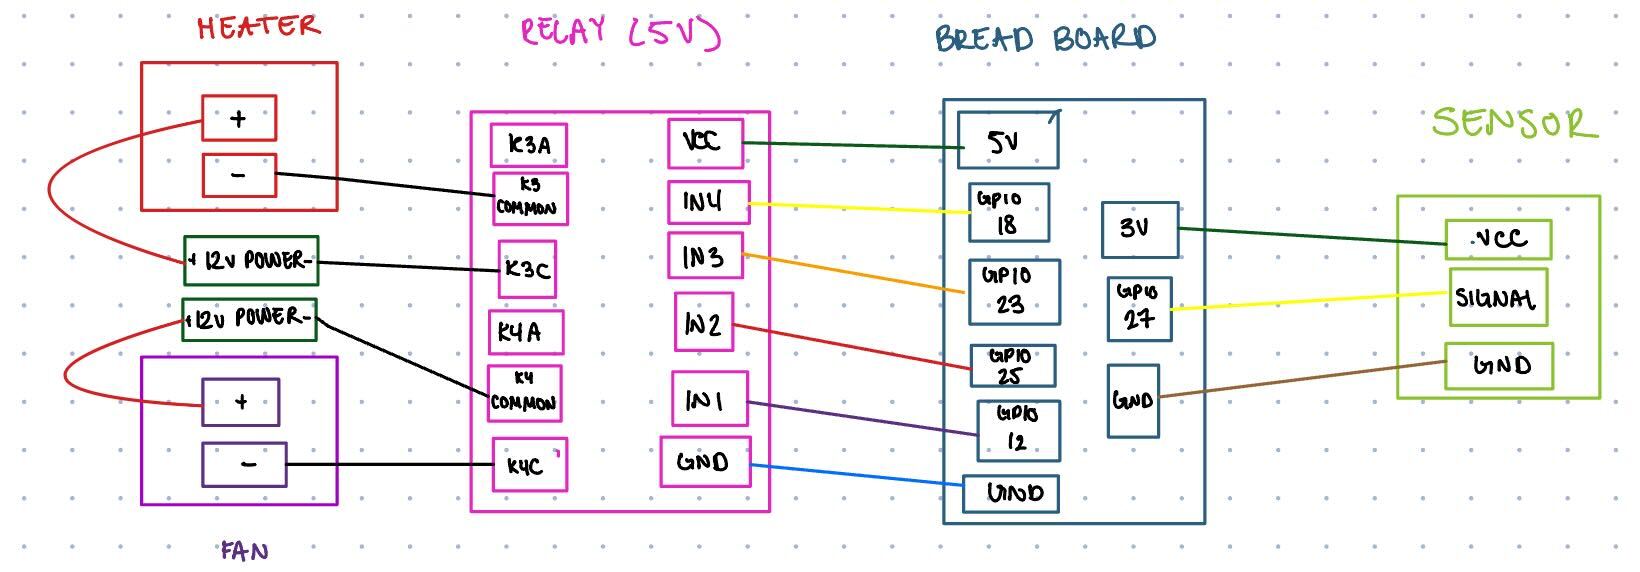 HEATER
+
-
+ 12V POWER -
+ 12V POWER -
+
-
FAN
RELAY (5V)
K3A
K3
COMMON
K3C
K4A
K4
COMMON
K4C
VCC
IN4
IN3
IN2
IN1
GND
BREAD BOARD
5V
GPIO
18
GPIO
23
GPIO
25
GPIO
12
GND
3V
GPIO
27
GND
SENSOR
VCC
SIGNAL
GND